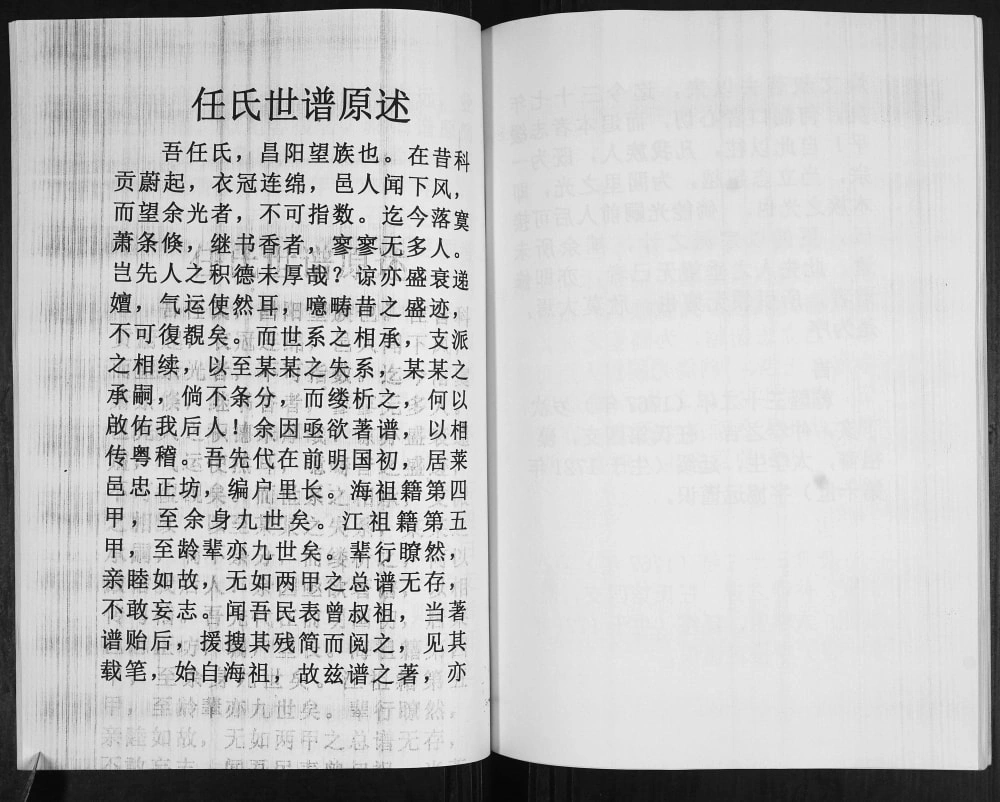 任氏世谱原述
吾任氏，昌阳望族也。在昔科
贡蔚起，衣冠连绵，邑人闻下风，
而望余光者，不可指数。迄今落寞
萧条倏，继书香者，寥寥无多人。
岂先人之积德未厚哉？谅亦盛衰递
嬗，气运使然耳，噫畴昔之盛迹，
不可復覩矣。而世系之相承，支派
之相续，以至某某之失系，某某之
承嗣，倘不条分，而缕析之，何以
啟佑我后人！余因亟欲著谱，以相
传粤稽。吾先代在前明国初，居莱
邑忠正坊，编户里长。海祖籍第四
甲，至余身九世矣。江祖籍第五
甲，至龄辈亦九世矣。辈行瞭然，
亲睦如故，无如两甲之总谱无存，
不敢妄志。闻吾民表曾叔祖，当著
谱贻后，援搜其残简而阅之，见其
载笔，始自海祖，故兹谱之著，亦